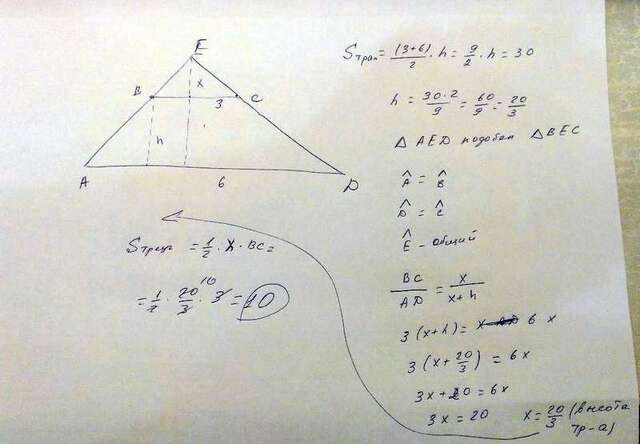 E
B
x
3
C
h
A
6
D
Sтрап = (3+6)/2 · h = 9/2 · h = 30
h = 30·2/9 = 60/9 = 20/3
Δ AED подобен Δ BEC
Â = B̂
D̂ = Ĉ
Ê - общий
BC/AD = x/(x+h)
3(x+h) = 6x
3(x + 20/3) = 6x
3x + 20 = 6x
3x = 20 x = 20/3 (высота
тр-а)
= 1/2 · h · BC =
= 1/2 · 20/3 · 3 = 10
10